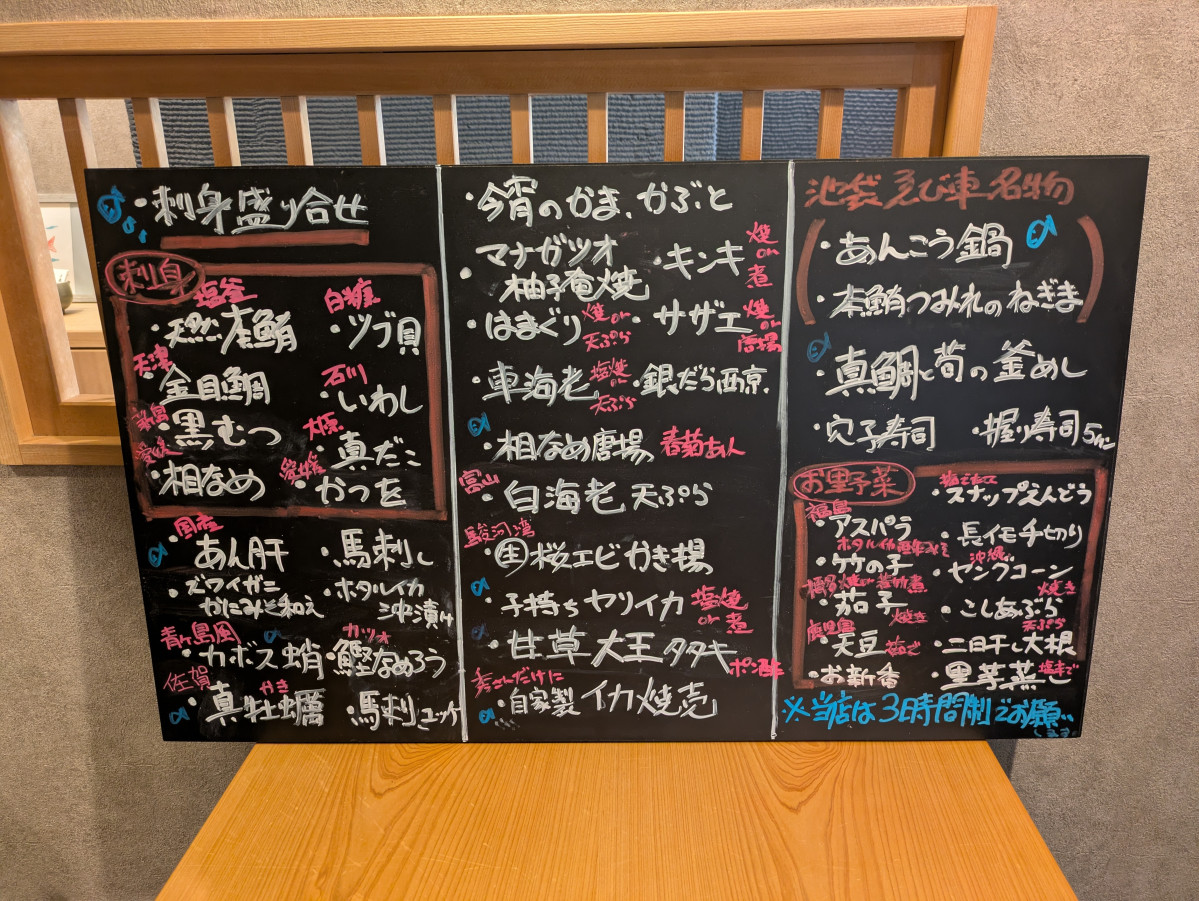 ・刺身盛り合せ
刺身
塩釜 白糠
・天然本鮪 ・ツブ貝
石川
・金目鯛 ・いわし
・黒むつ ・真だこ
愛媛 愛媛
・相なめ ・かつを
・国産
あん肝 ・馬刺し
・ズワイガニ ・ホタルイカ
かにみそ和え 沖漬け
カツオ
・カボス蛸 ・鰹なめろう
佐賀 かき
・真牡蠣 ・馬刺ユッケ
・今宵のかま、かぶと
マナガツオ ・キンキ 焼or煮
・柚子庵焼
・はまぐり 焼or天ぷら ・サザエ 焼or唐揚
・車海老 塩焼or天ぷら ・銀だら西京
・相なめ唐揚 春菊あん
富山
・白海老天ぷら
駿河湾
・生桜エビかき揚
・子持ちヤリイカ 塩焼or煮
・甘草大王タタキ ポン酢
・自家製イカ焼売
池袋えび車名物
・あんこう鍋
・本鮪つみれのねぎま
・真鯛と筍の釜めし
・穴子寿司 ・握り寿司5カン
お野菜
・スナップえんどう
福島
・アスパラ ・長イモ千切り
沖縄
・竹の子 ・ヤングコーン 焼き
・茄子 焼き ・こしあぶら 天ぷら
鹿児島
・天豆 茹で ・二日干し大根
・お新香 ・里芋蒸し
※当店は3時間制でお願いします。